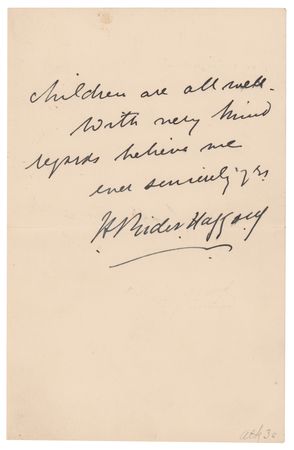 children are all well.
With very kind
regards believe me
ever sincerely yrs
H Rider Haggard